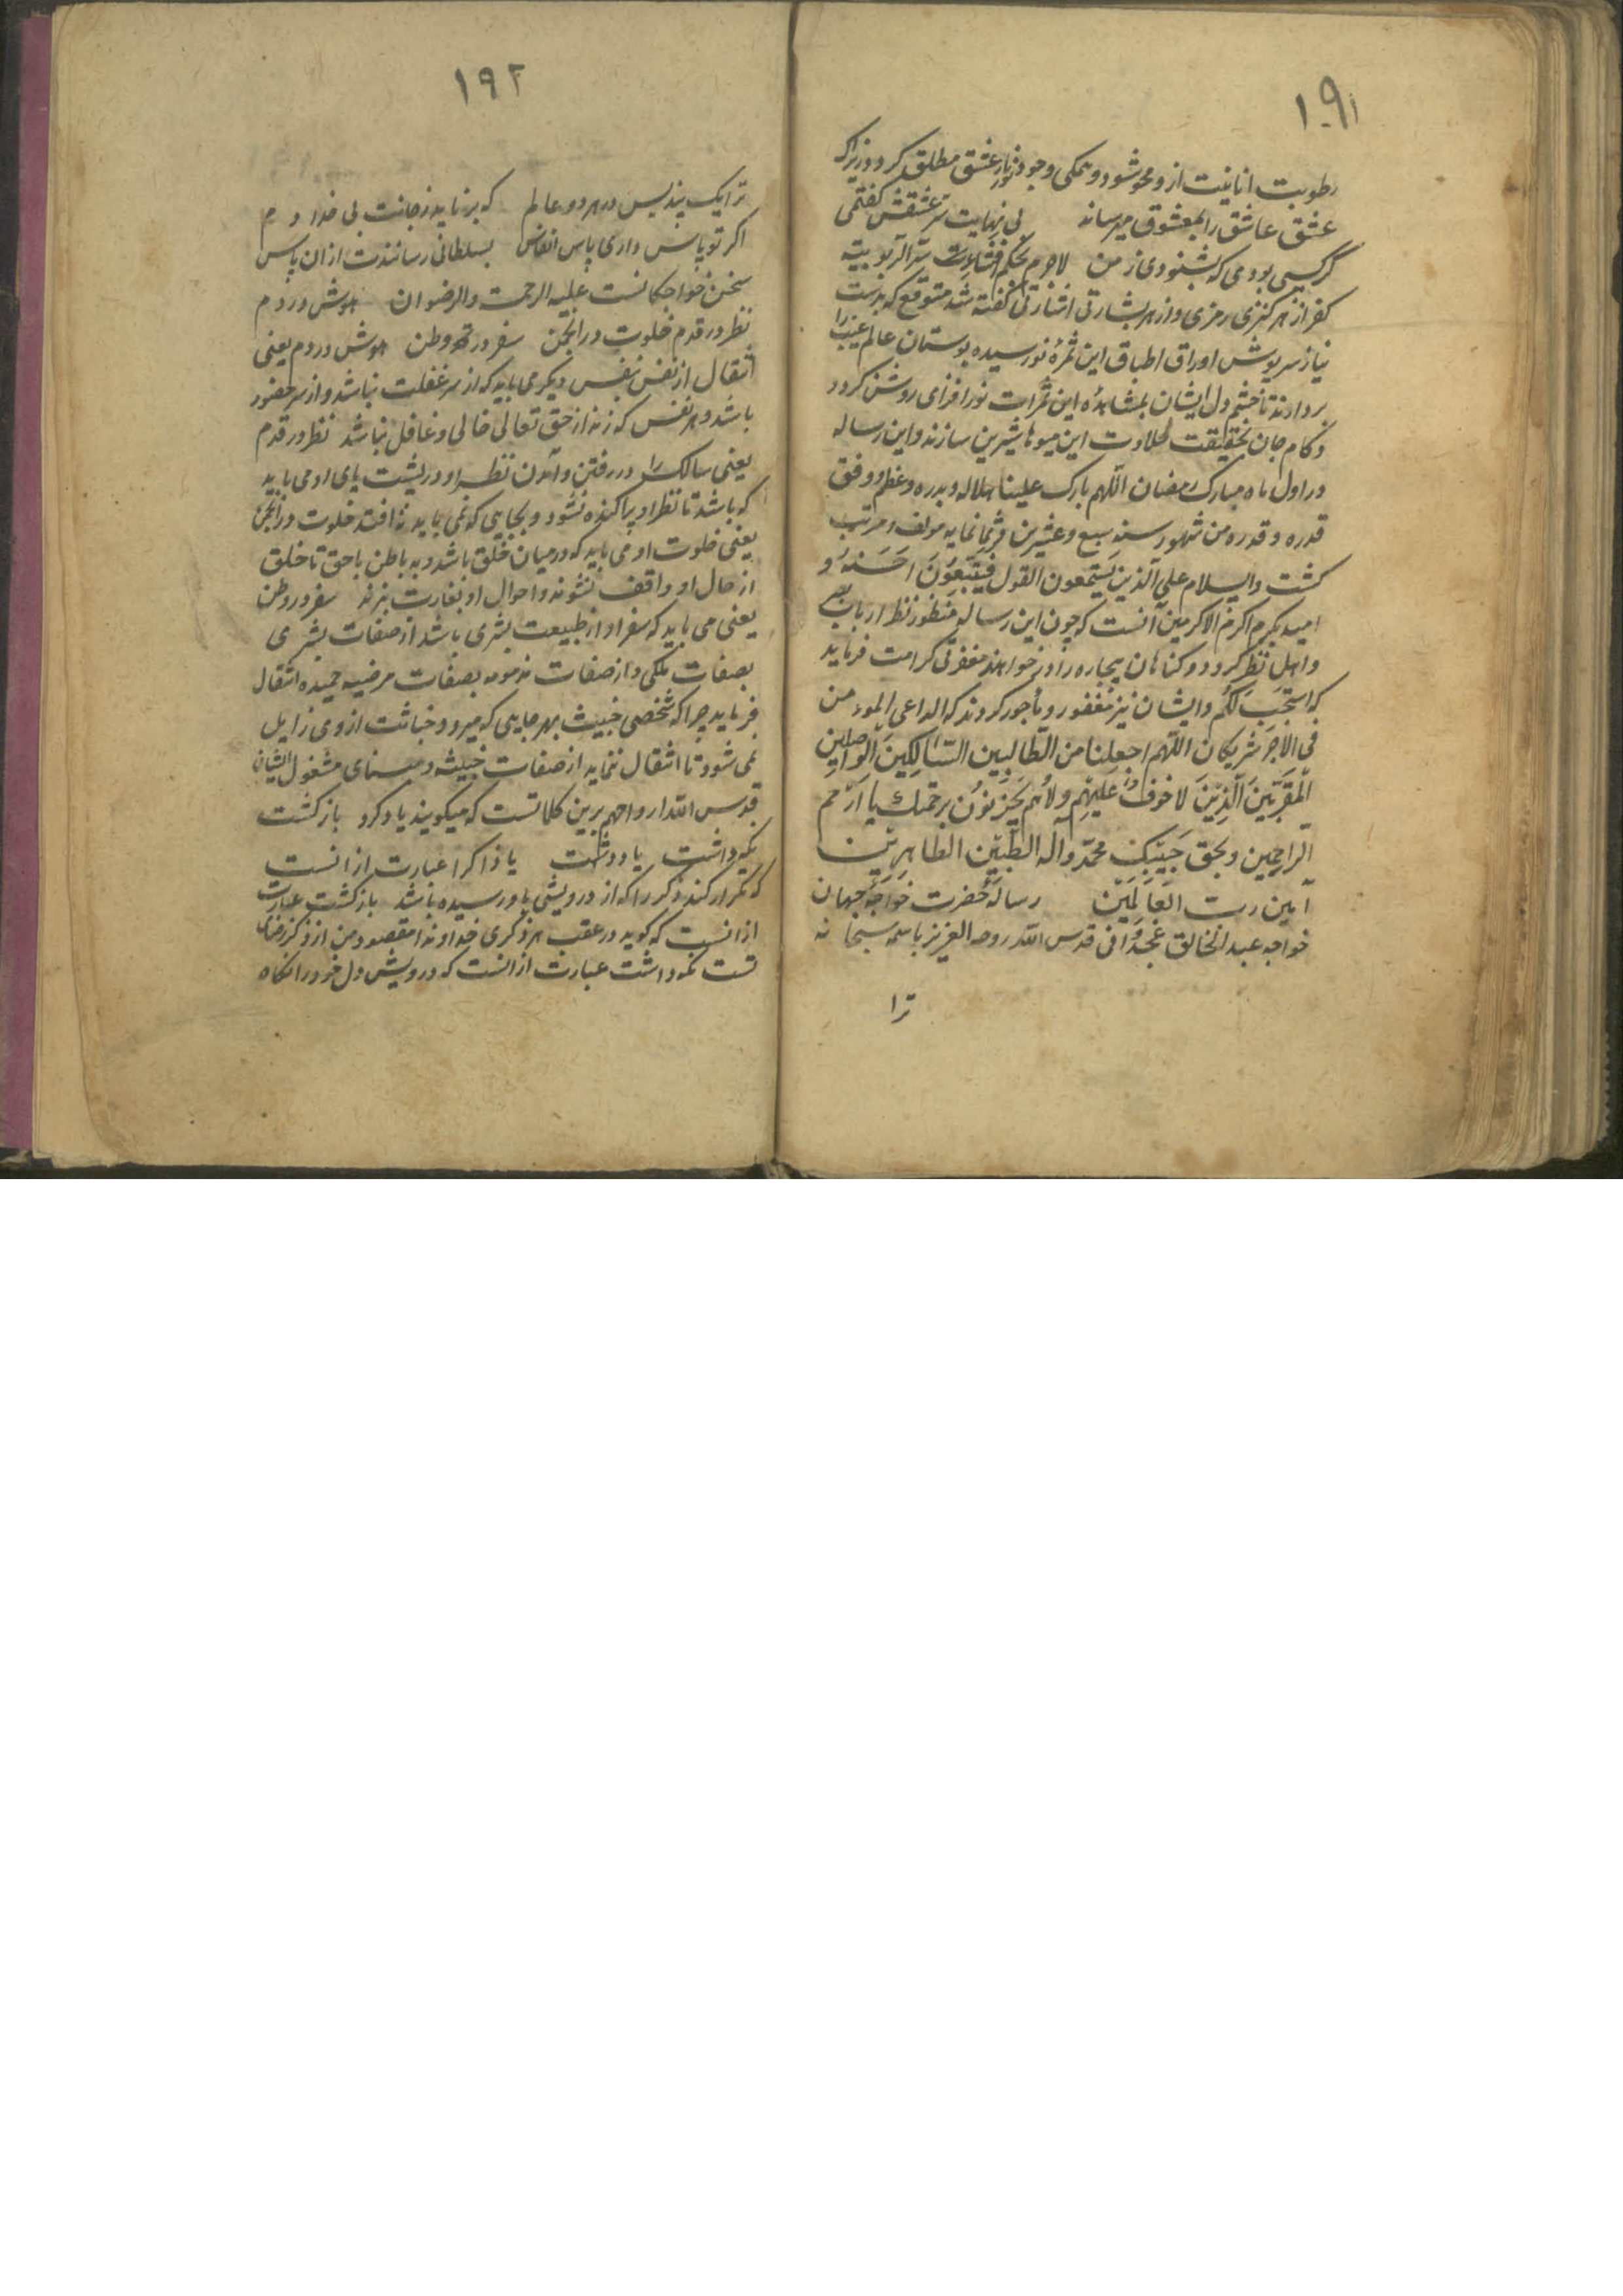 ۱۹۱
رطوبت انانیت ازو محو شود و همکی وجود نور نار عشق مطلق کردد زیرا که
عشق عاشق را بمعشوق میرساند بی نهایت سر عشقش کفتمی
کر کسی بودی که بشنودی ز من لاجرم بحکم افشاء سر الربوبیته
کفر از هر کنزی رمزی و از هر بشارتی اشارتی کفته شد متوقع که بدست
نیاز سرپوش اوراق اطباق این ثمرهٔ نو رسیده بوستان عالم غیب را
بردارند تا چشم دل ایشان بمشاهدهٔ این ثمرات نور افزای روشن کردد
و کام جان بحقیقت حلاوت این میوها شیرین سازند و این رساله
در اول ماه مبارک رمضان اللهم بارک علینا هلاله و بدره و عظم و وفق
قدره و قدره من شهور سنه سبع و عشرین و ثمانمایه مولف و مرتب
کشت والسلام علی الذین یستمعون القول فیتبعون احسنه و
امید بکرم اکرم الاکرمین آنست که چون این رساله منظور نظر ارباب بصر
و اهل نظر کردد و کناهان بیچاره را در خواهند مغفرتی کرامت فرماید
که استجب لکم و ایشان نیز مغفور و مأجور کردند که الداعی الموءمن
فی الاجر شریکان اللهم اجعلنا من الطالبین السالکین الواصلین
المقربین الذین لا خوف علیهم ولا هم یحزنون برحمتك یا ارحم
الراحمین و بحق حبیبک محمد واله الطیبین الطاهرین
آمین رب العالمین رساله حضرت خواجه جهان
خواجه عبد الخالق غجدوانی قدس الله روحه العزیز باسمه سبحانه
ترا
۱۹۲
ترا یک پند بس در هر دو عالم که بر ناید ز جانت بی خدا دم
اکر تو پاس داری پاس انفاس بسلطانی رسانندت ازان پاس
سخن خواجکانست علیه الرحمت والرضوان هوش در دم
نظر در قدم خلوت در انجمن سفر در وطن هوش در دم یعنی
انتقال از نفس بنفس دیکر می باید که از سر غفلت نباشد و از سر حضور
باشد و هر نفس که زند از حق تعالی خالی و غافل نباشد نظر در قدم
یعنی سالک را در رفتن و آمدن نظر او در پشت پای او می باید
که باشد تا نظر او پراکنده نشود و بجایی که نمی باید نه افتد خلوت در انجمن
یعنی خلوت او می باید که در میان خلق باشد و به باطن با حق تا خلق
از حال او واقف نشوند و احوال او بغارت نبرند سفر در وطن
یعنی می باید که سفر او از طبیعت بشری باشد از صفات بشری
بصفات ملکی و از صفات مذمومه بصفات مرضیه حمیده انتقال
فرماید چرا که شخصی خبیث بهر جایی که میرود خباثت از وی زایل
نمی شود تا انتقال ننماید از صفات خبیثه و معنای مشغول ایشان
قدس الله ارواحهم برین کلماتست که میکویند یاد کرد باز کشت
نکهداشت یادداشت یاد کرد عبارت از انست
که تکرار کند ذکر را که از درویشی باو رسیده باشد باز کشت عبارت
از انست که کوید در عقب هر ذکری خداوندا مقصود من از ذکر رضای
تست نکهداشت عبارت از انست که درویش دل خود را نکاه